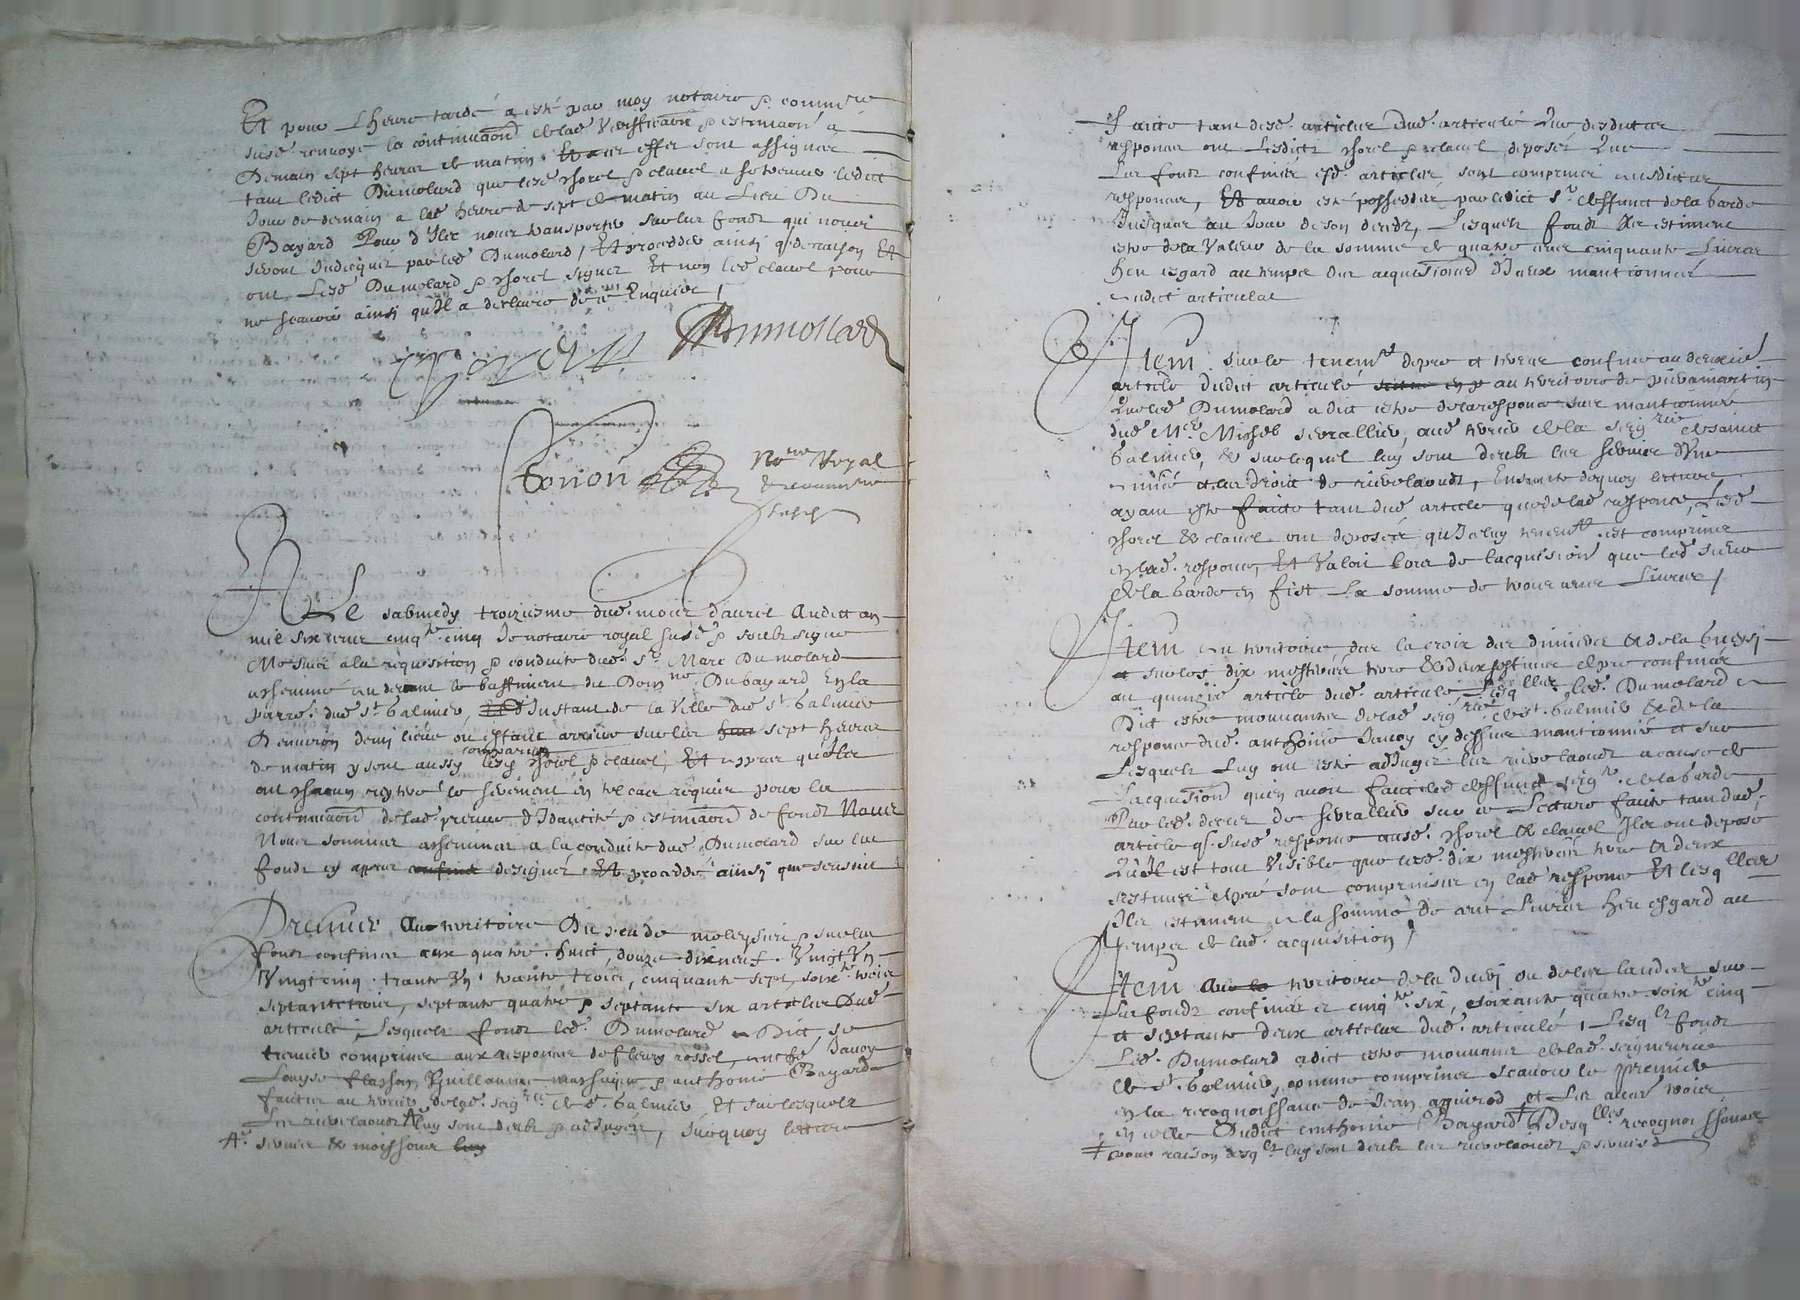 Et pour Lheure tarde a esté par moy notaire & commre
susd. renvoyé la continuaon de lad. veriffication & estimaon a
Demain sept heures de matin. Et a cet effet sont assignes
tant ledict Dumolard que lesd. Thorel & clauel a se treuuer ledict
Jour de demain a lad. heure de sept de matin au Lieu Du
Bayard Pour d'Illec nous transporter sur les fondz qui nous
seront Indicquez par led. Dumolard, Et proceder ainsi q. de raison Et
ont Lesd. Dumolard & Thorel signez Et non led. clauel pour
ne scauoir ainsi qu'Il a declaire de ce Enquier,
Dumollard
Thorel
Tonion Nore Royal
& commre
Le sabmedy troiziesme dud. mois d'auril Audict an
mil six cens cinqte cinq Je notaire royal susd. & soubzsigné
Me suis a la requisition & conduite dud. sr. Marc Dumolard
acheminé au deuant le bastiment du Domne. Du bayard En la
parre. dud. st. balmier, distant de la Ville dud. st. balmier
D'enuiron demi lieue ou estant arriue sur les sept heures
de matin y sont aussy comparus lesd. Thorel & clauel, Et apprez qu'Ilz
ont chacun reytere le serement en tel cas requis pour la
continuaon de lad. preuue d'Idantité & estimaon de fondz Nous
Nous sommes acheminez a la conduite dud. Dumolard sur les
fondz cy apprez designés Et procedé ainsi que sensuit
Premier Au territoire Du & sur les
fondz confines aux quatre. huict, douze dixneuf. Vingt Vn
Vingt cinq. trante Vn. trante trois, cinquante sept, soixte trois
septante trois, septante quatre & septante six articles Dud.
articulé, Lesquelz fondz led. Dumolard a Dict, se
treuuer comprins aux responces de fleury rossel, Janoy
Louyse Guillaume & anthoine Bayard
faictes au terrier de lad. seigrie. de st. balmier, Et sur lesquelz
Les rierelaoudz luy sont deubz & adjugés, surquoy lecture
seruis & moissons
Faicte tant desd. articles dud. articulé Que desdictes
responces ont Lesdictz Thorel & clauel, deposé Que
Les fondz confines esd. articles sont comprins ausdictes
responces, Et auoir esté possedés par ledict sr. deffunct de la barde
Jusques au Jour de son deceds, Lesquelz fondz Ilz estiment
estre de la Valeur de la somme de quatre cens cinquante Liures
heu esgard au temps des acquisitions d'Iceux mantionnés
audict articulat
Item sur le tenemt. de pré et terre confiné au
article dudict articulé au territoire de
Que led. Dumolard a dict estre de la responce mantionnée
dud. Mre. Michel aud. terrier de la seigrie de sainct
balmier, & sur lequel luy sont deubz les seruis d'Vne
et les droictz de rierelaoudz, Ensuite dequoy lecture
ayant esté faicte tant dud. article que de lad. responce, Lesd.
Thorel & clauel ont deposés qu'Icelluy tenemt. est comprins
en lad. responce, Et Valoir lors de lacquision que led. sieur
de la barde en fist La somme de trois cens Liures,
Item au territoire des la croix des & de la
et sur les dix mestieres terre & deux septines de pré confinés
au quinzie. article dud. articulé Lesqlles led. Dumolard a
Dict estre mouuantes de lad. seigrie. de st. balmier & de la
responce dud. anthoine Janoy cy dessus mantionnée et sur
Lesquelz Luy ont esté adjugés les rierelaoudz a cause de
Lacquision qu'en auoit faict led. deffunct seigr. de la barde
Par led. decret de sur ce Lecture faicte tant dud.
article q. susd. responce ausd. Thorel & clauel Ilz ont deposé
Qu'Il est tout Visible que lesd. dix mestieres terre & deux
septines de pré sont comprinses en lad. responce Et lesqlles
Ilz estiment a la somme De cent Liures heu esgard au
temps de lad. acquisition,
Item territoire de la ou de las landes sur
Les fondz confinés es cinqte. six, soixante quatre soixte. cinq
et septante deux articles dud. articulé, Lesqlz fondz
Led. Dumolard a dict estre mouuans de lad. seigneurie
de st. balmier, comme comprins scauoir le premier
en la recognoissance de Jean et Les aues. trois
en celle Dudict anthoine Bayard Desqlles recognoissances
pour raison desqlz luy sont deubz les rierelaoudz & seruis